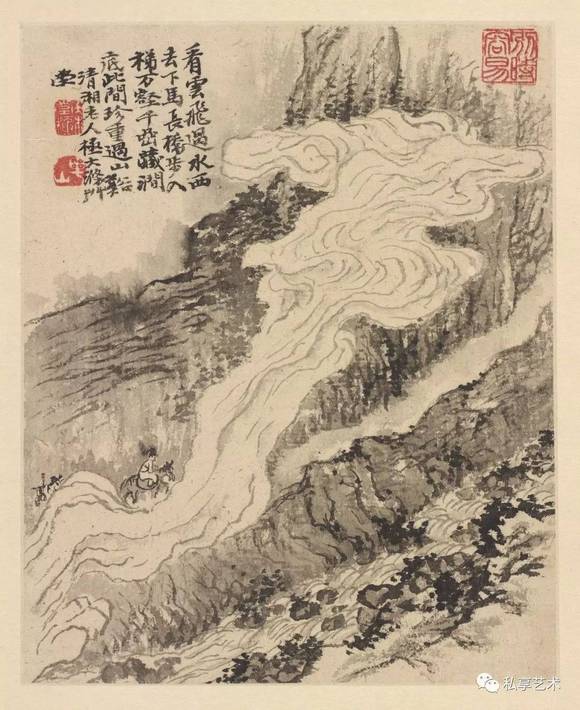 別時
容易
看雲飛過水西
去下馬長橋步入
梯万壑千藏澗
底此間珍重過山谿
清湘老人極大滌艸
堂
私享艺术